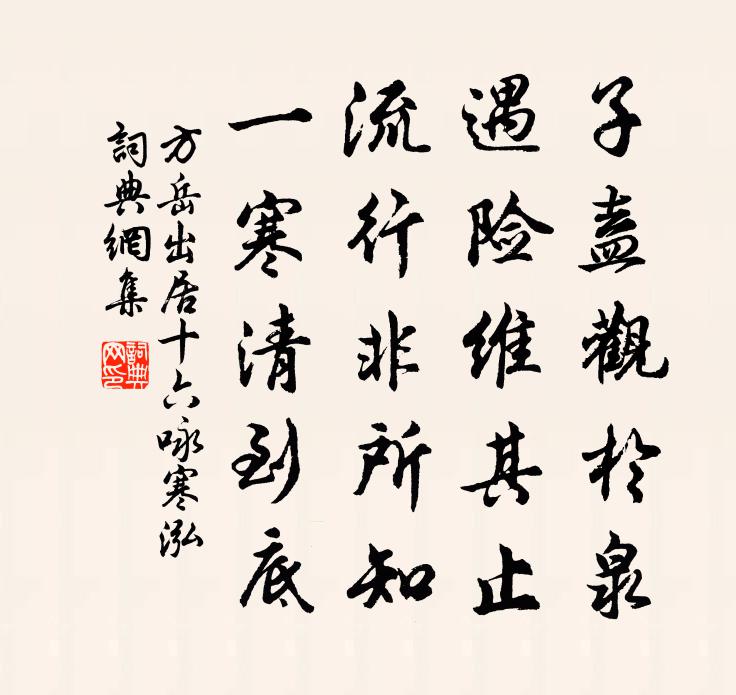 子盍觀於泉
遇险維其止
流行非所知
一寒清到底
方岳出居十六咏寒泓
詞典網集
詞典網印